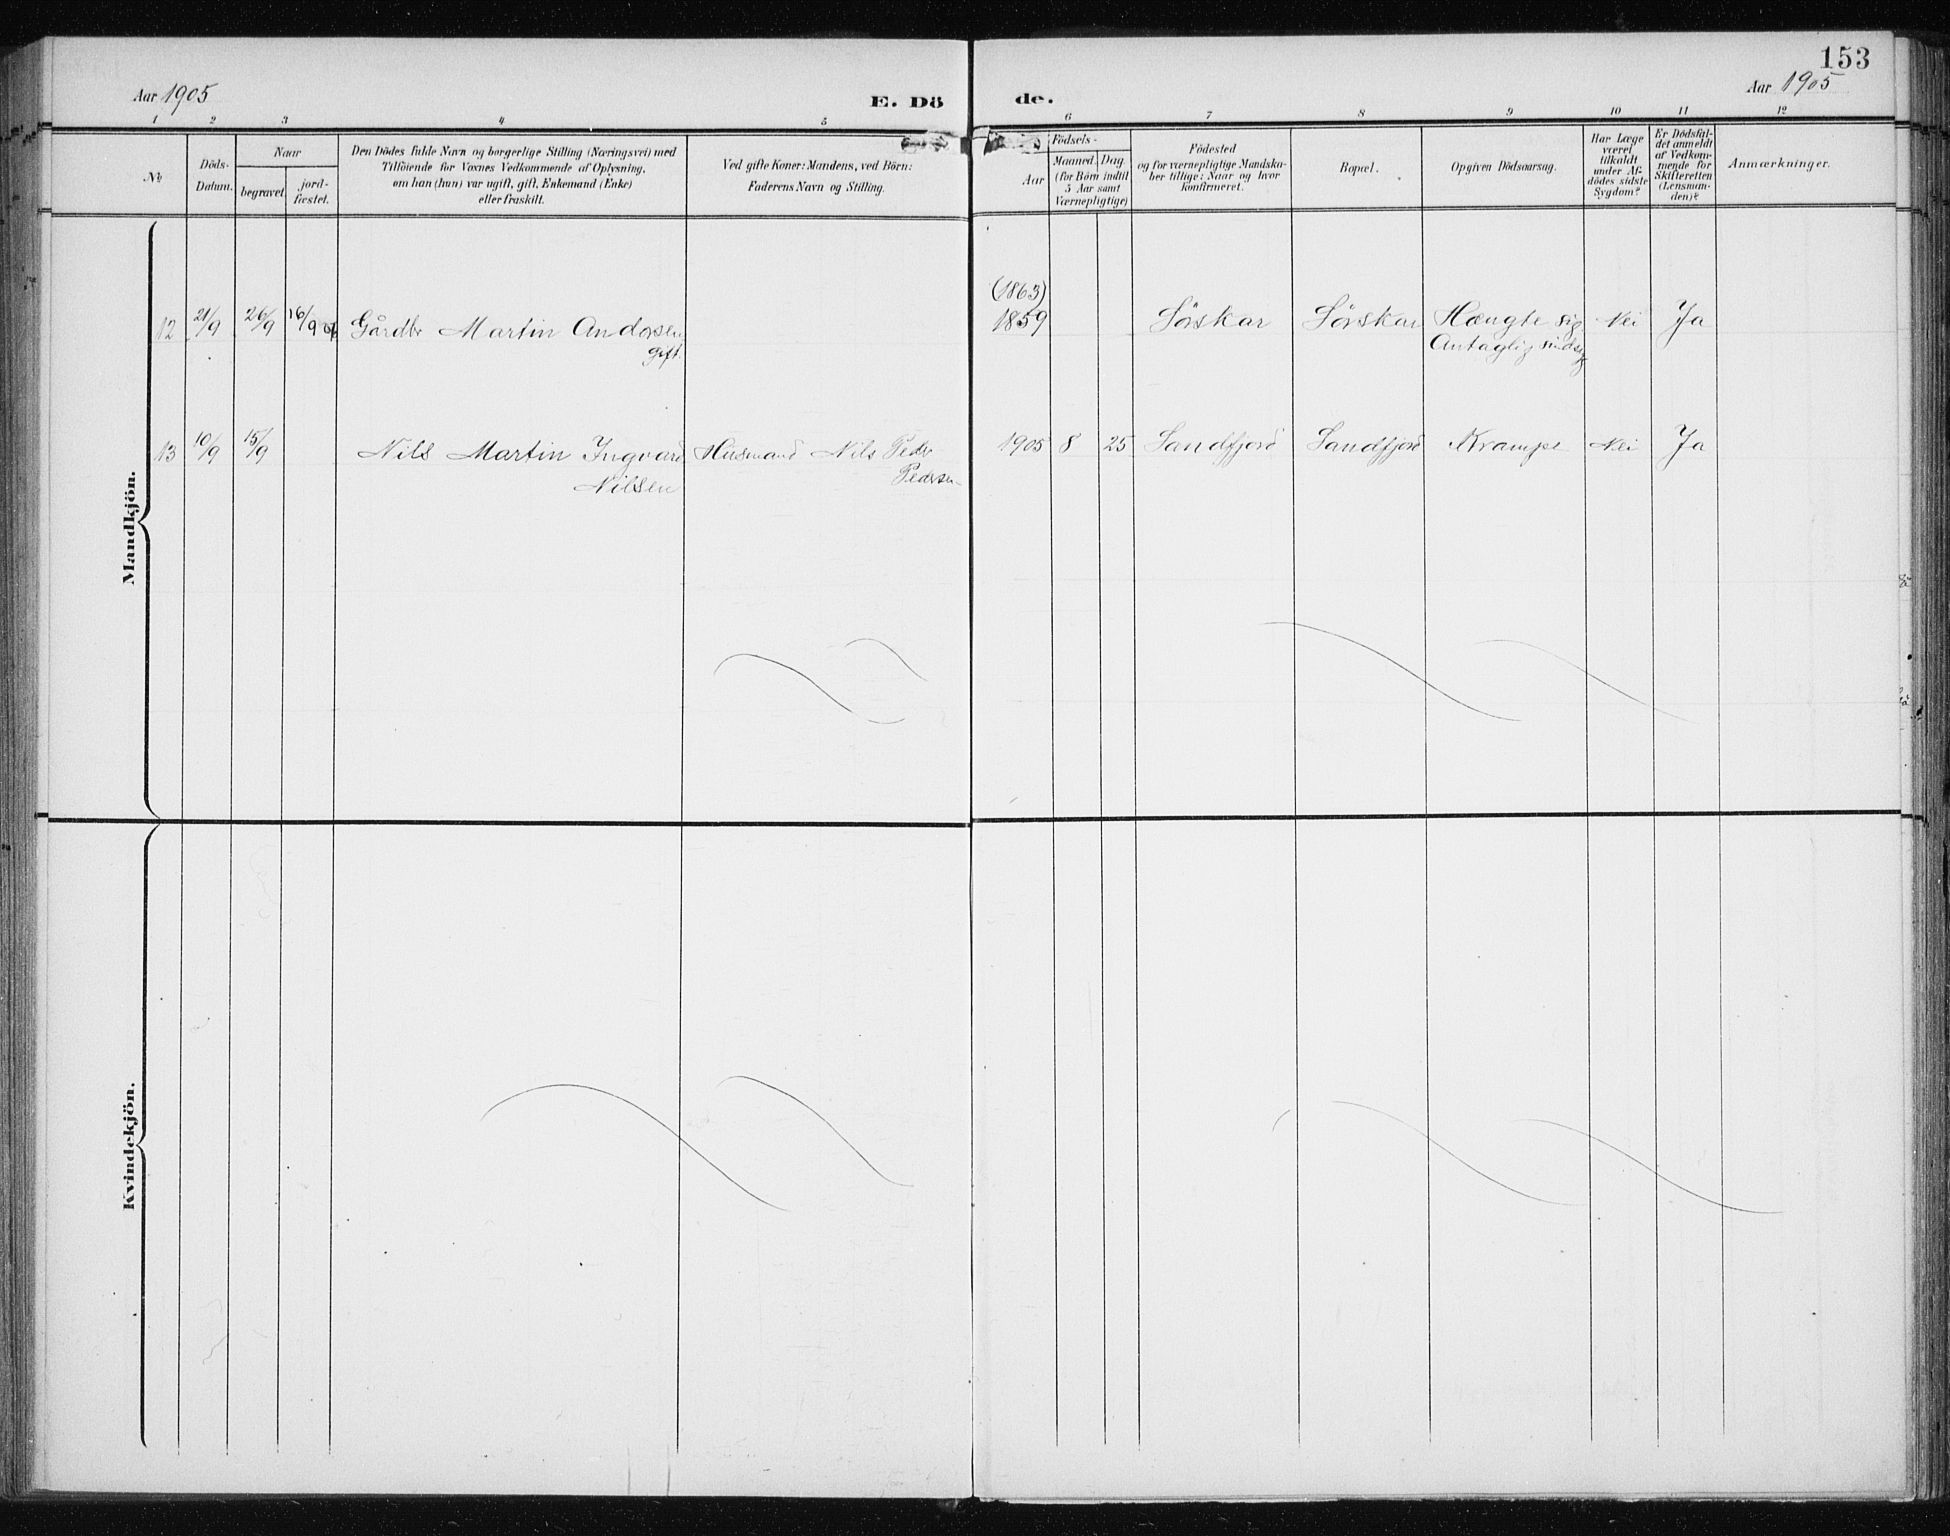 153
Aar 1905
E. Dö
de.
Aar 1905
1 2 3 4 5 6 7 8 9 10 11 12
No
Döds-
Datum.
Naar
begravet.
jord-
fæstet.
Den Dödes fulde Navn og borgerlige Stilling (Næringsvei) med
Tilföiende for Voxnes Vedkommende af Oplysning,
om han (hun) var ugift, gift, Enkemand (Enke)
eller fraskilt.
Ved gifte Koner: Mandens, ved Börn:
Faderens Navn og Stilling.
Födsels-
Aar
Maaned.
Dag
(for Börn indtil
5 Aar samt
Værnepligtige)
Födested
og for værnepligtige Mandska-
ber tillige: Naar og hvor
konfirmeret.
Bopæl.
Opgiven Dödsaarsag.
Har Læge
været
tilkaldt
under Af-
dödes sidste
Sygdom?
Er Dödsfal-
det anmeldt
af Vedkom-
mende for
Skifteretten
(Lensman-
den)?
Anmærkninger.
Mandkjön.
(1863)
12 21/9 26/9 16/9 06 Gårdbr Martin Andersen 1859 Sörskar Sörskar Hængte sig. Nei Ja
gift. Antaglig sindsyg
13 10/9 15/9 Nils Martin Ingvard Husmand Nils Peder 1905 8 25 Sandfjord Sandfjord Krampe Nei Ja
Nilsen Pedersen
Kvindekjön.